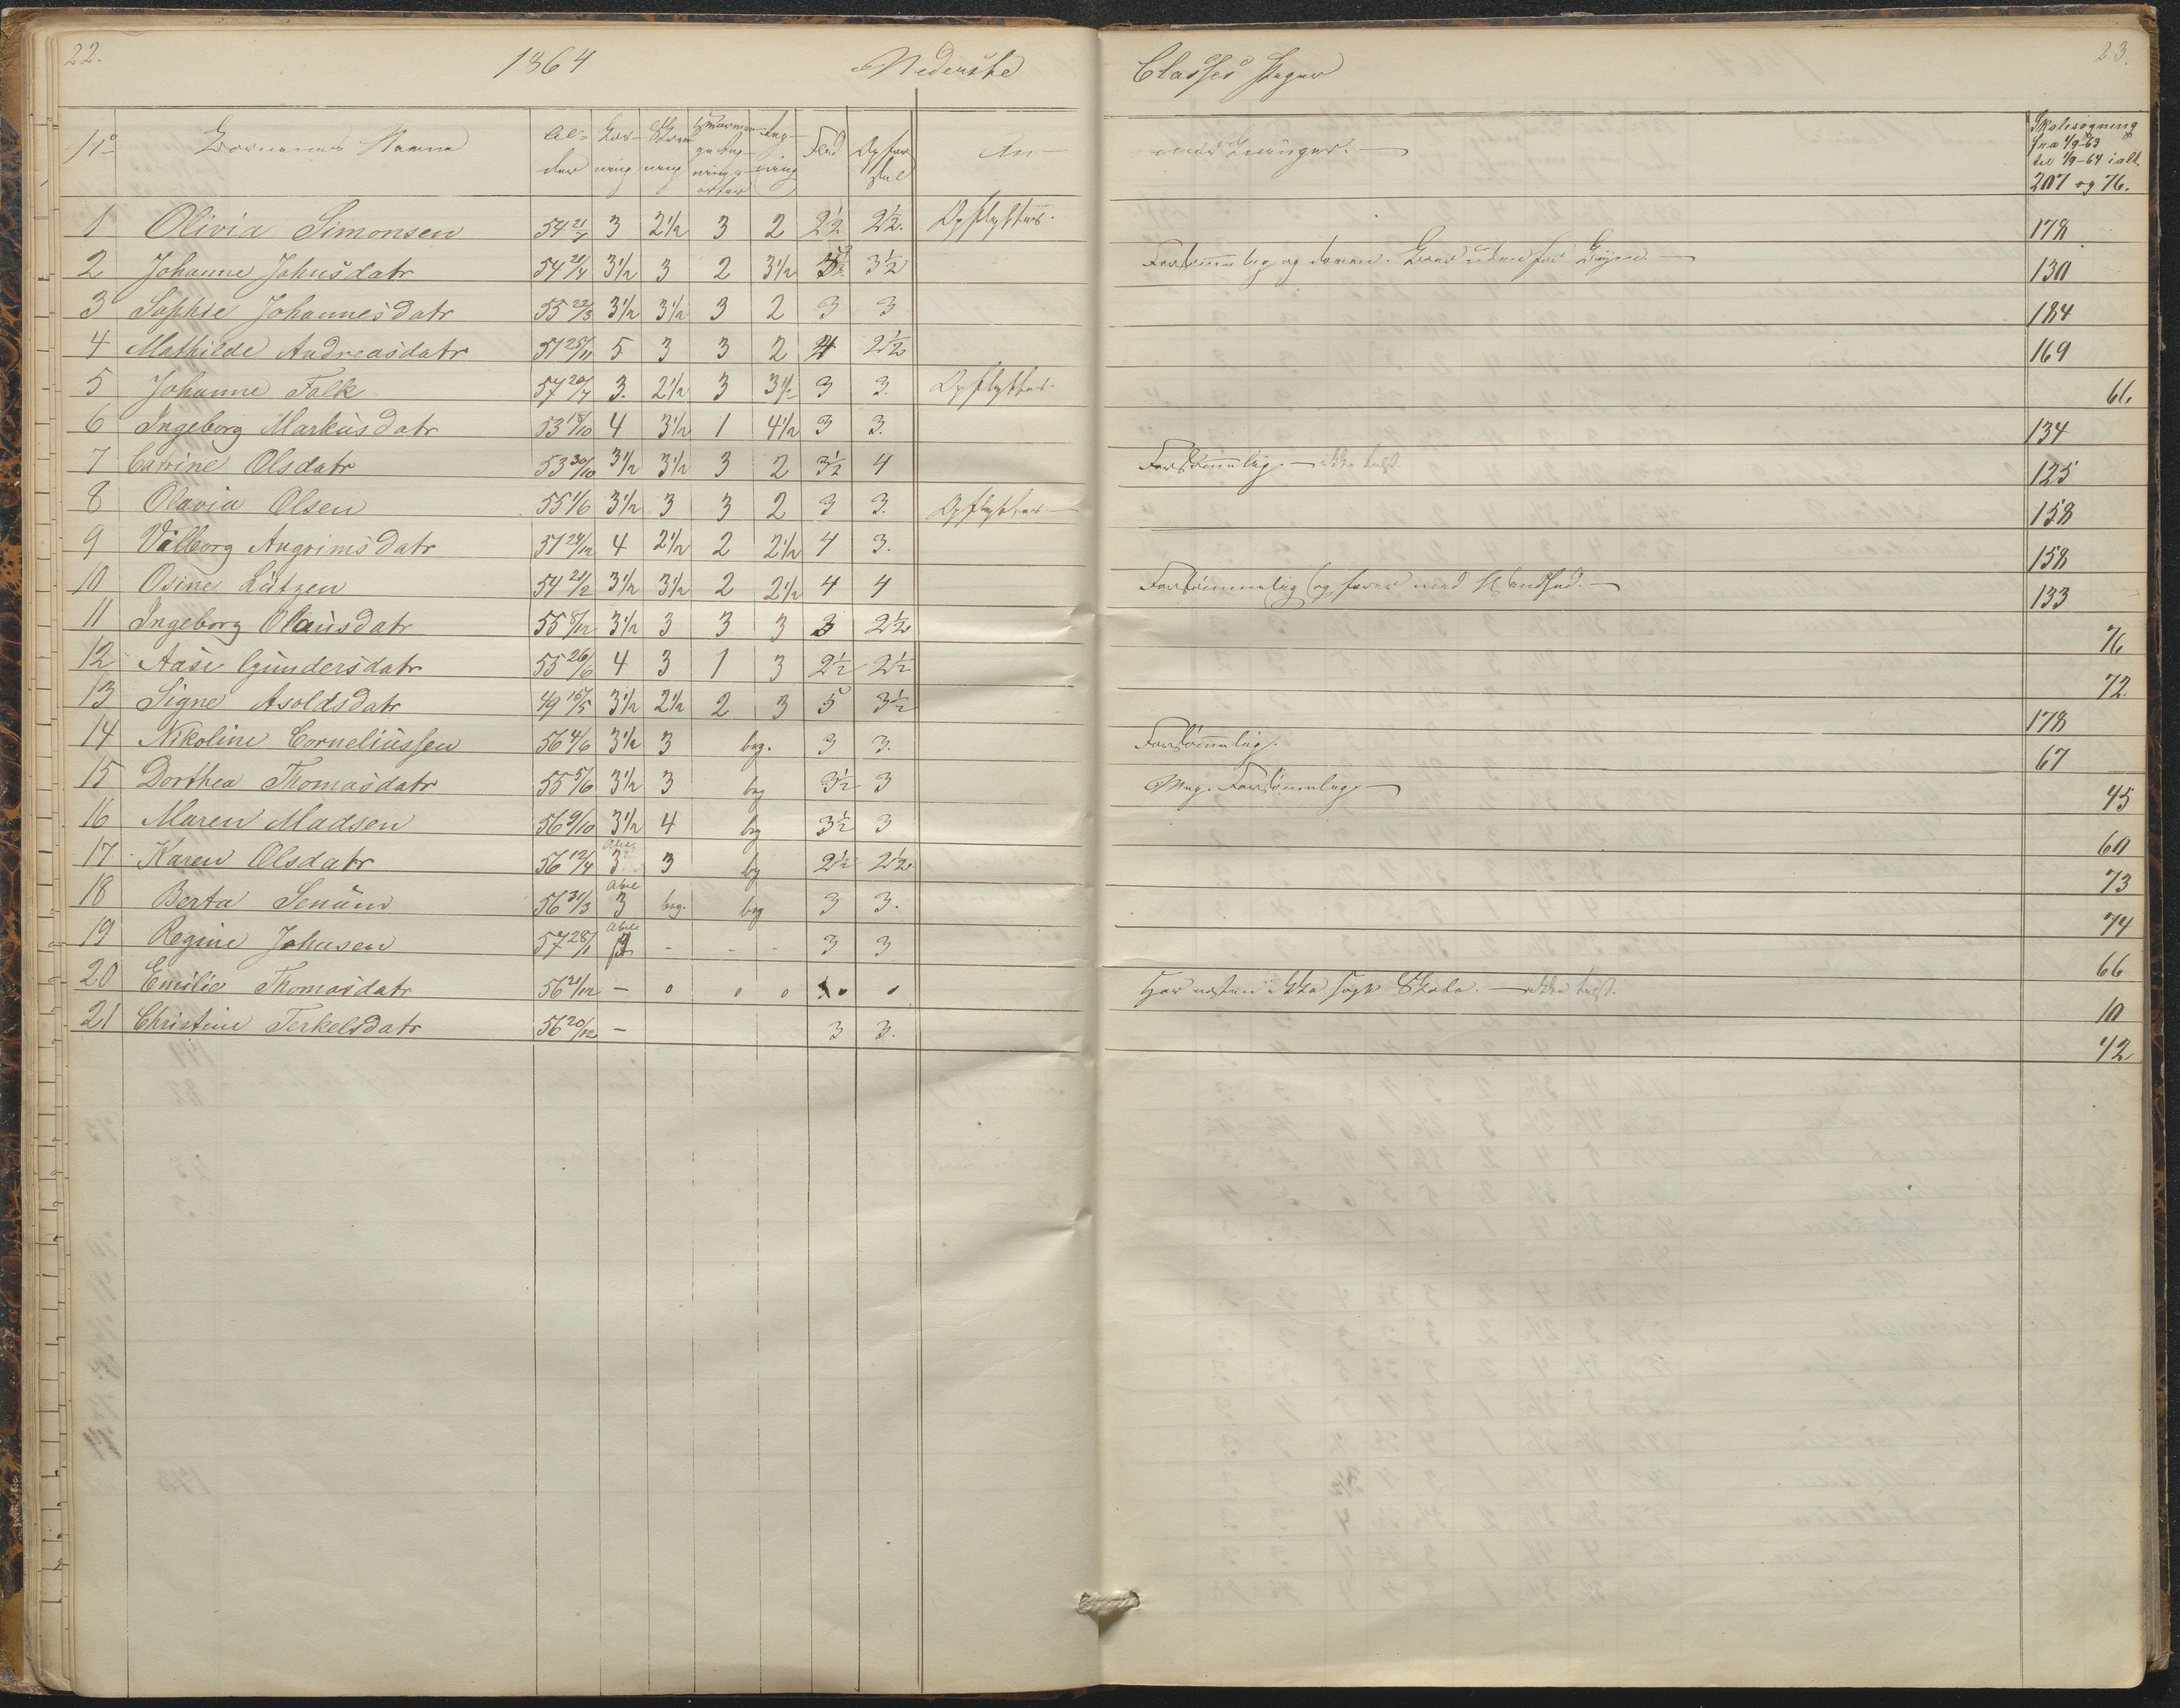 22. 1864 Nederste Classes Piger 23.
No Børnenes Navne Al-der Læs-ning Skriv-ning Reg-ning Flid Opfør-sel An-mærkninger. Skolesøgning fra 1/9-63 til 1/9-64 ialt 207 og 76.
1 Olivia Simonsen 54 21/7 3 2½ 3 2 2½ 2½. Opflyttes. 178
2 Johanne Johnsdatr 54 21/4 3½ 3 2 3½ 3½ Forsømmelig og doven. 130
3 Sophie Johannesdatr 55 22/3 3½ 3½ 3 2 3 3 184
4 Mathilde Andreasdatr 51 25/11 5 3 3 2 4 2½ 169
5 Johanne Falk 57 20/7 3. 2½ 3 3½ 3 3. Opflyttes. 66
6 Ingeborg Markusdatr 53 18/10 4 3½ 1 4½ 3 3. 134
7 Carine Olsdatr 53 30/10 3½ 3½ 3 2 3½ 4 Forsømmelig. — ikke 125
8 Olavia Olsen 55 1/6 3½ 3 3 2 3 3. Opflyttes — 158
9 Valborg Angrimsdatr 51 24/12 4 2½ 2 2½ 4 3. 158
10 Osine Lützen 54 21/2 3½ 3½ 2 2½ 4 4 Forsømmelig og 133
11 Ingeborg Olausdatr 55 8/12 3½ 3 3 3 3 2½ 76
12 Aase Gundersdatr 55 26/6 4 3 1 3 2½ 2½ 72
13 Signe Asoldsdatr 49 15/5 3½ 2½ 2 3 5 3½ 178
14 Nikoline Corneliussen 56 4/6 3½ 3 beg. 3 3. Forsømmelig. 67
15 Dorthea Thomasdatr 55 5/6 3½ 3 beg 3½ 3 Meg. Forsømmelig. — 45
16 Maren Madsen 56 9/10 3½ 4 beg 3½ 3 60
17 Karen Olsdatr 56 12/4 Abc 3 3 beg 2½ 2½ 73
18 Berta Senum 56 31/3 Abc 3 beg. beg 3 3. 74
19 Regine Johnsen 57 28/1 Abc - - - 3 3 66
20 Emilie Thomasdatr 56 21/12 — 0 0 0 Har næsten ikke søgt Skole. — ikke 10
21 Christine Terkelsdatr 56 20/12 — 3 3. 42